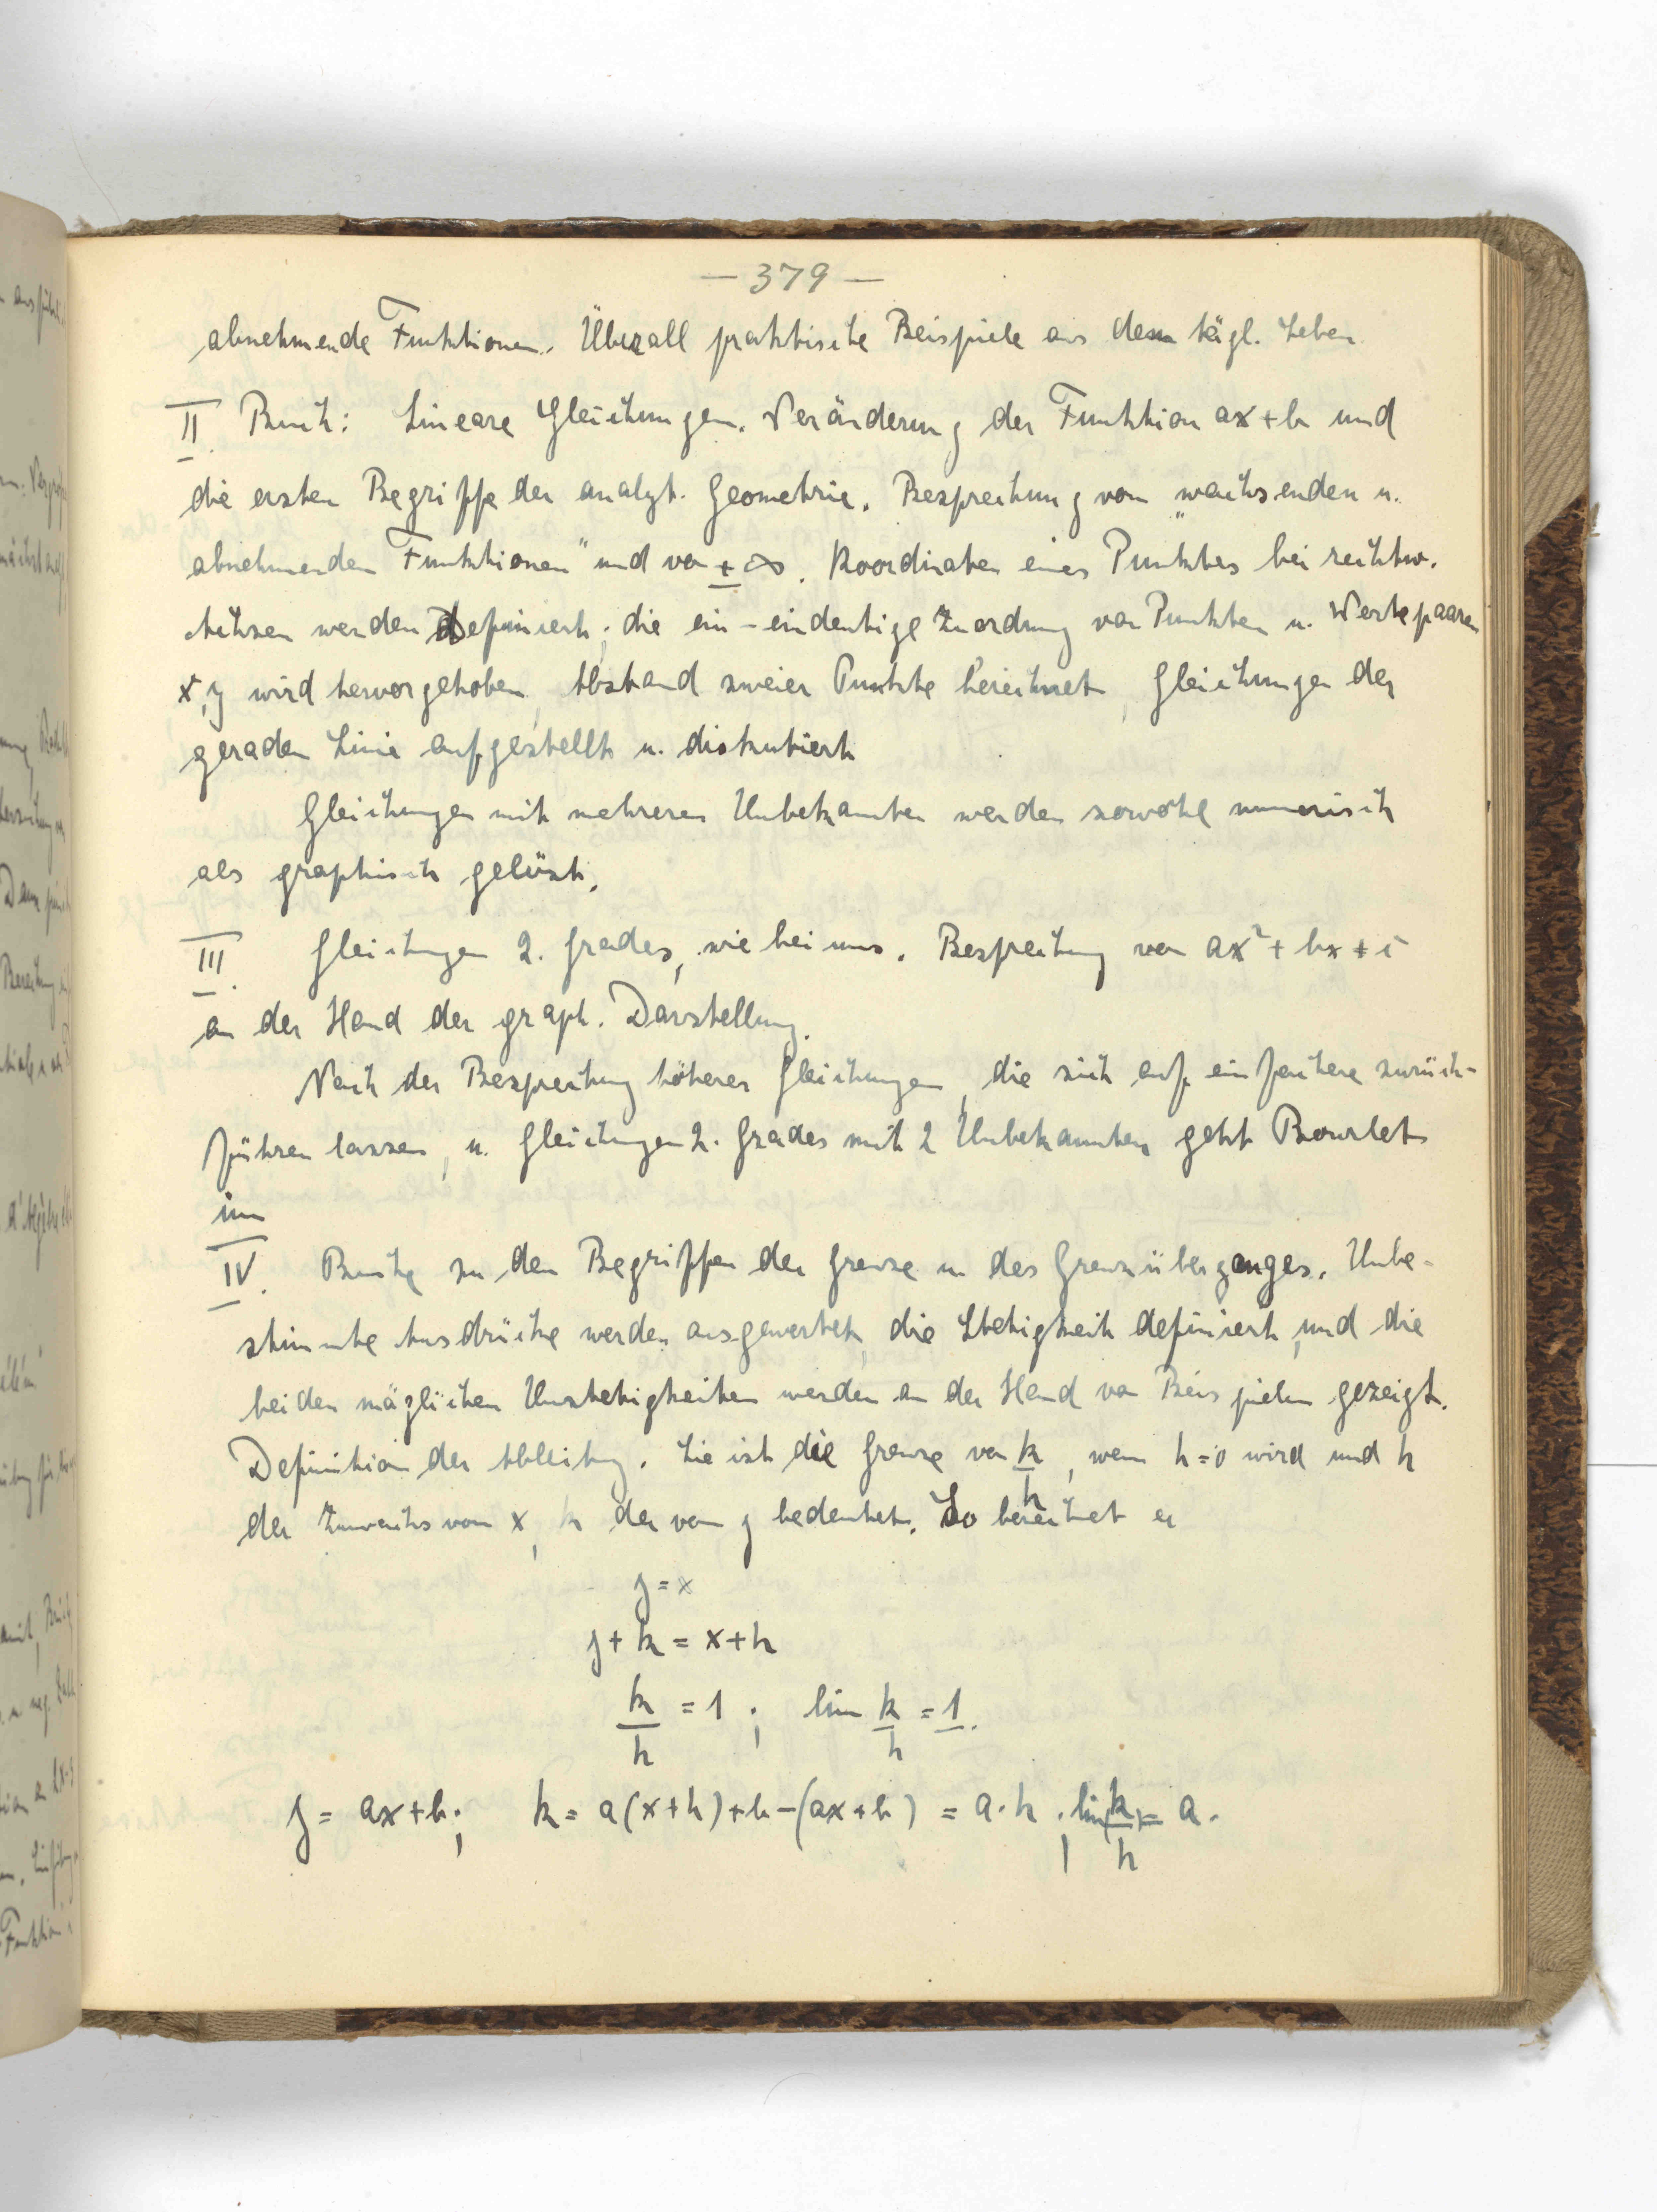 — 379 —
abnehmende Funktionen. Überall praktische Beispiele aus dem tägl. Leben.
II. Buch: Lineare Gleichungen. Veränderung der Funktion ax+b und
die ersten Begriffe der analyt. Geometrie. Besprechung von „wachsenden u.
abnehmenden Funktionen" und von ± ∞. Koordinaten eines Punktes bei rechtw.
Achsen werden definiert; die ein-eindeutige Zuordnung von Punkten u. Wertepaaren
x, y wird hervorgehoben, Abstand zweier Punkte berechnet, Gleichungen der
geraden Linie aufgestellt u. diskutiert
Gleichungen mit mehreren Unbekannten werden sowohl numerisch
als graphisch gelöst.
III. Gleichungen 2. Grades, wie bei uns. Besprechung von ax²+bx+c
an der Hand der graph. Darstellung.
Nach der Besprechung höherer Gleichungen, die sich auf einfachere zurück-
führen lassen, u. Gleichungen 2. Grades mit 2 Unbekannten geht Bourlet
im
IV. Buche zu den Begriffen der Grenze u. des Grenzüberganges. Unbe-
stimmte Ausdrücke werden ausgewertet, die Stetigkeit definiert, und die
beiden möglichen Unstetigkeiten werden an der Hand von Beispielen gezeigt.
Definition der Ableitung. Sie ist die Grenze von k/h, wenn h=0 wird und h
der Zuwachs von x, k der von y bedeutet. So berechnet er
y = x
y + k = x + h
k/h = 1; lim k/h = 1.
y = ax+b; k = a(x+h)+b-(ax+b) = a·h; lim k/h = a.